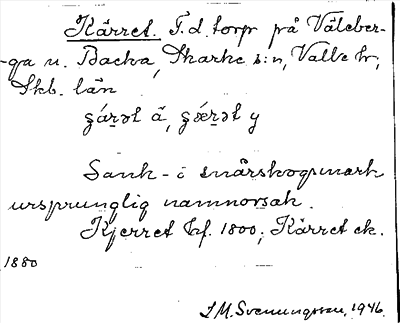 Kärret. F.d. torp på Väleber-
ga u. Backa, Skarke s:n, Valle hr,
Skb. län
ʂárət ä, ʂǽrət y
Sänk- i småskogsmark
ursprunglig namnorsak.
Kjerret hf. 1800; Kärret ek.
1880
S M. Svenungsson, 1946.